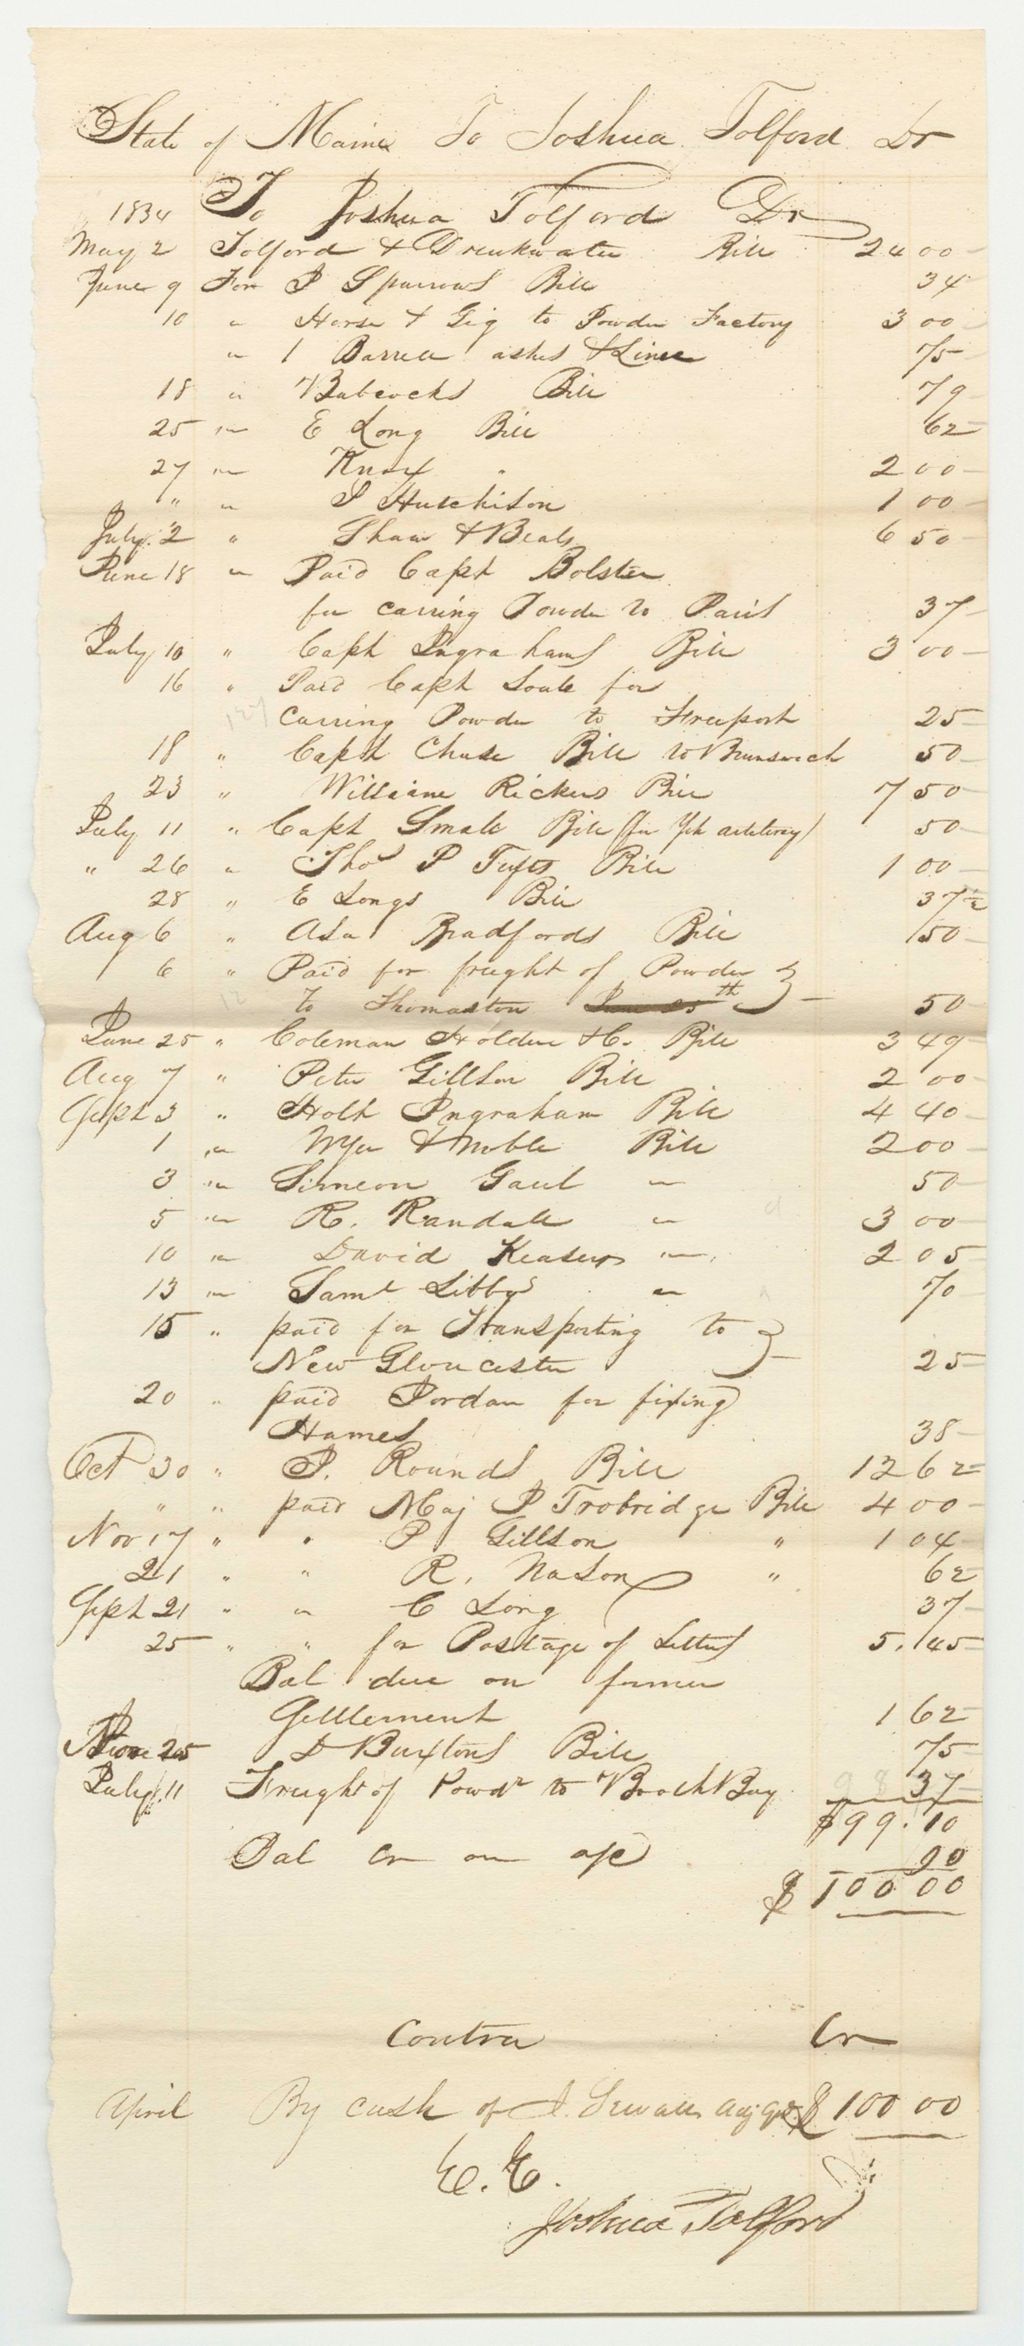 State of Maine To Joshua Tolford Dr
1834 To Joshua Tolford Dr
May 2 Tolford & Drinkwater Bill 24 00
June 9 For J Sparrows Bill 34
10 " Horse & Gig to Powder Factory 3 00
" 1 Barrell ashes & Lime 75
18 " Babcocks Bill 79
25 " E Long Bill 62
27 " Knox " 2 00
" " J Hutchison 1 00
July 2 " Shaw & Beals 6 50
June 18 " Paid Capt Bolster
for carring Powder to Paris 37
July 10 " Capt Ingrahams Bill 3 00
16 " Paid Capt Soule for
Carring Powder to Freeport 25
18 " Capt Chase Bill to Brunswick 50
23 " William Rickers Bill 7 50
July 11 " Capt Small Bill (for Yk artilery) 50
" 26 " Thos P Tufts Bill 1 00
28 " E Longs Bill 37½
Aug 6 " Asa Bradfords Bill 1 50
6 " Paid for freight of Powder
To Thomaston June 25th 50
June 25 " Coleman Holden & Co. Bill 3 49
Aug 7 " Peter Gillson Bill 2 00
Sept 3 " Holt Ingraham Bill 4 40
1 " Wyer & Noble Bill 2 00
3 " Simeon Gaul " 50
5 " R. Randall " 3 00
10 " David Keasers " 2 05
13 " Saml Libbys " 70
15 " paid for Transporting to
New Gloucester 25
20 " paid Jordan for fixing
Hames 38
Oct 30 " J. Rounds Bill 12 62
" " paid Maj J Trobridge Bill 4 00
Nov 17 " " P Gillson " 1 04
21 " " R. Nason " 62
Sept 21 " " C Long 37
25 " " for Postage of Letters 5.45
Bal due on former
Settlement 1 62
June 25 D Buxtons Bill 75
July 11 Freight of Powdr to BoothBay 37
$99.10
Bal Cr on a/c 90
$ 100 00
Contra Cr
April By cash of J. Sewall Adj Genl $ 100 00
E. E.
Joshua Tolford